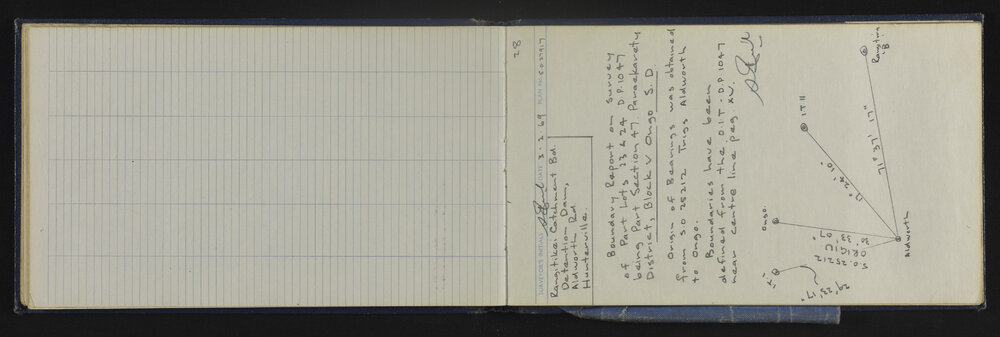 28
SURVEYOR'S INITIALS DATE 3.2.69 PLAN No. S.O.27917
Rangitikei Catchment Bd.
Detention Dam,
Aldworth Rd.
Hunterville.
Boundary Report on Survey
of Part Lots 23 & 24 D.P. 1047
being Part Section 47. Paraekaretu
District, Block V Ongo S.D
Origin of Bearings was obtained
from S.O 25212 Trigs Aldworth
to Ongo.
Boundaries have been
defined from the O.I.T - D.P. 1047
near centre line peg XV.
Rangitira 'B'
I T II
71° 37' 17"
Ongo.
Aldworth
S.O. 25212
ORIG
'X'
23' 17"